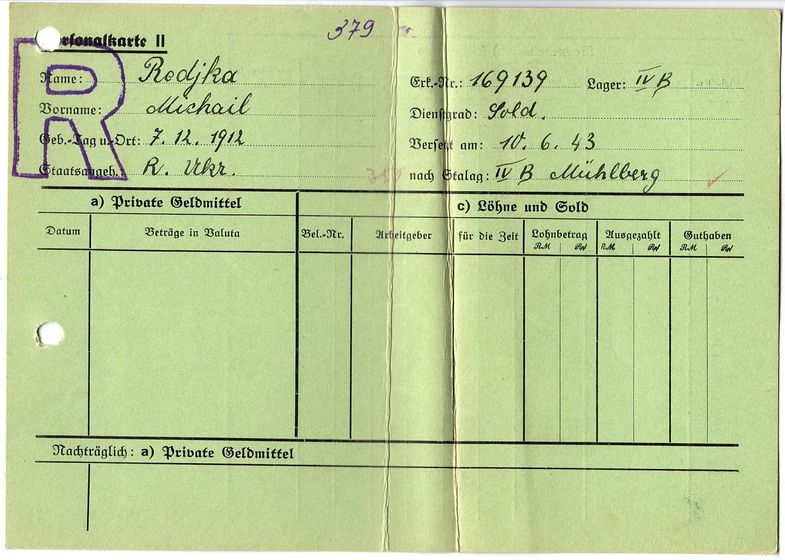 379
Personalkarte II
R
Name: Redjka
Vorname: Michail
Geb.-Tag u. Ort: 7. 12. 1912
Staatsangeh.: R. Ukr.
Erk.-Nr.: 169139 Lager: IV B
Dienstgrad: Sold.
Versetzt am: 10. 6. 43
nach Stalag: IV B Mühlberg
a) Private Geldmittel
c) Löhne und Sold
Datum Beträge in Valuta Bel.-Nr. Arbeitgeber für die Zeit Lohnbetrag Ausgezahlt Guthaben
RM Rpf RM Rpf RM Rpf
Nachträglich: a) Private Geldmittel